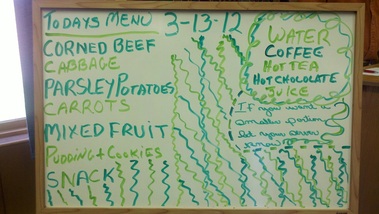 TODAYS MENU 3-13-12
CORNED BEEF
CABBAGE
PARSLEY POTATOES
CARROTS
MIXED FRUIT
PUDDING + COOKIES
SNACK
WATER
COFFEE
HOT TEA
HOT CHOCOLATE
JUICE
If you want a
smaller portion
let your server
know